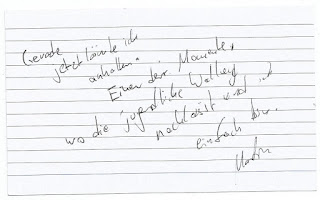 Gerade
jetzt könnte ich
anhalten.
Einer der Momente,
wo die jugendliche
nachlässt und
einfach bin.